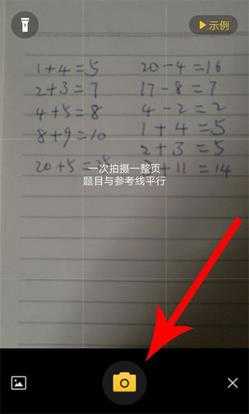 示例
1+4=5
20-4=16
2+3=7
17-8=7
4+5=8
4-2=2
8+9=10
1+4=5
2+3=5
一次拍摄一整页
20+5=
+11=14
题目与参考线平行